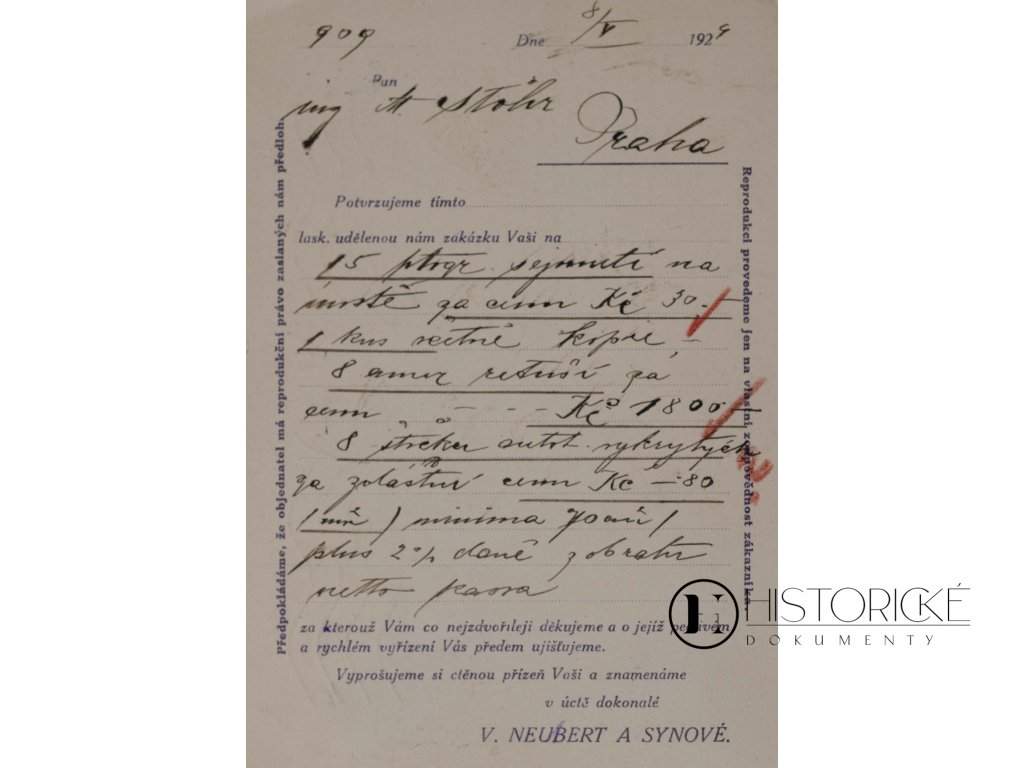 909 Dne 8/V 1924
Pan
ing M. Stöhr
Praha
Potvrzujeme tímto
lask. udělenou nám zakázku Vaši na
15 ptogr. sejmutí na
místě za cenu Kč 30.—
1 kus světné kopie, —
8 amer retuší za
cenu - - - Kč 1800—
8 štočků autot. vykrytých
za zvláštní cenu Kč —·80
/ minima 70 cm /
plus 2% daně z obratu
netto kassa
za kterouž Vám co nejzdvořileji děkujeme a o jejíž pečlivém
a rychlém vyřízení Vás předem ujišťujeme.
Vyprošujeme si ctěnou přízeň Vaši a znamenáme
v úctě dokonalé
V. NEUBERT A SYNOVÉ.
Předpokládáme, že objednatel má reprodukční právo zaslaných nám předloh
Reprodukci provedeme jen na vlastní zodpovědnost zákazníka.
HISTORICKÉ
DOKUMENTY